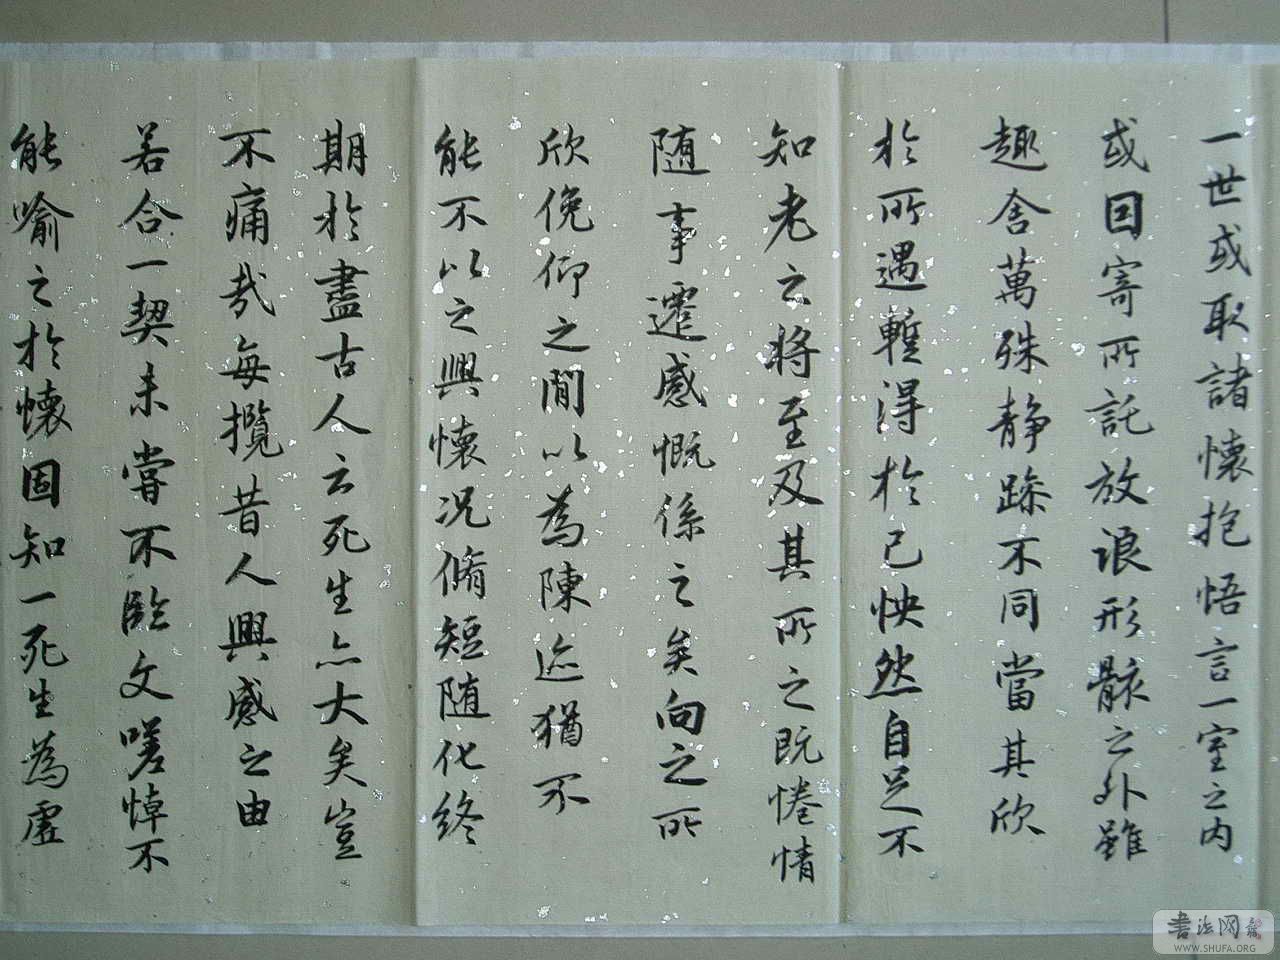 一世或取諸懷抱悟言一室之内
或因寄所託放浪形骸之外雖
趣舎萬殊静躁不同當其欣
於所遇蹔得於己怏然自足不
知老之将至及其所之既惓情
随事遷感慨係之矣向之所
欣俛仰之閒以為陳迹猶不
能不以之興懷况脩短随化終
期於盡古人云死生亦大矣豈
不痛哉每攬昔人興感之由
若合一契未嘗不臨文嗟悼不
能喻之於懷固知一死生為虚
書法网
WWW.SHUFA.ORG